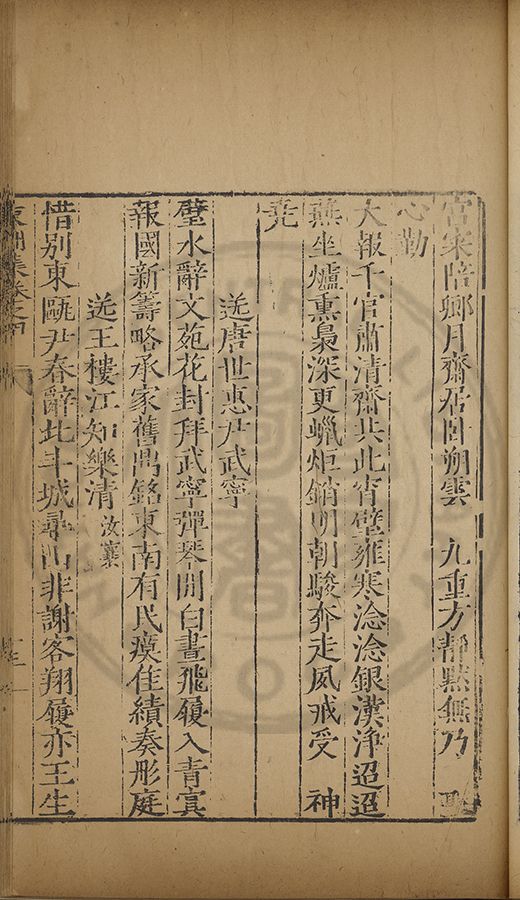 宮來陪鄉月齋居卧朔雲　九重方靜默無乃　聖
心勤
大報千官肅清齋共此宵璧雍寒淰淰銀漢淨迢迢
燕坐爐熏裊深更蠟炬銷明朝駿奔走夙戒受　神
堯
送唐世惠尹武寧
璧水辭文苑花封拜武寧彈琴閒白晝飛履入青冥
報國新籌略承家舊鼎銘東南有民瘼佳績奏彤庭
送王樓江知樂清汝襄
惜別東甌尹春辭北斗城尋山非謝客翔履亦王生
集卷之四